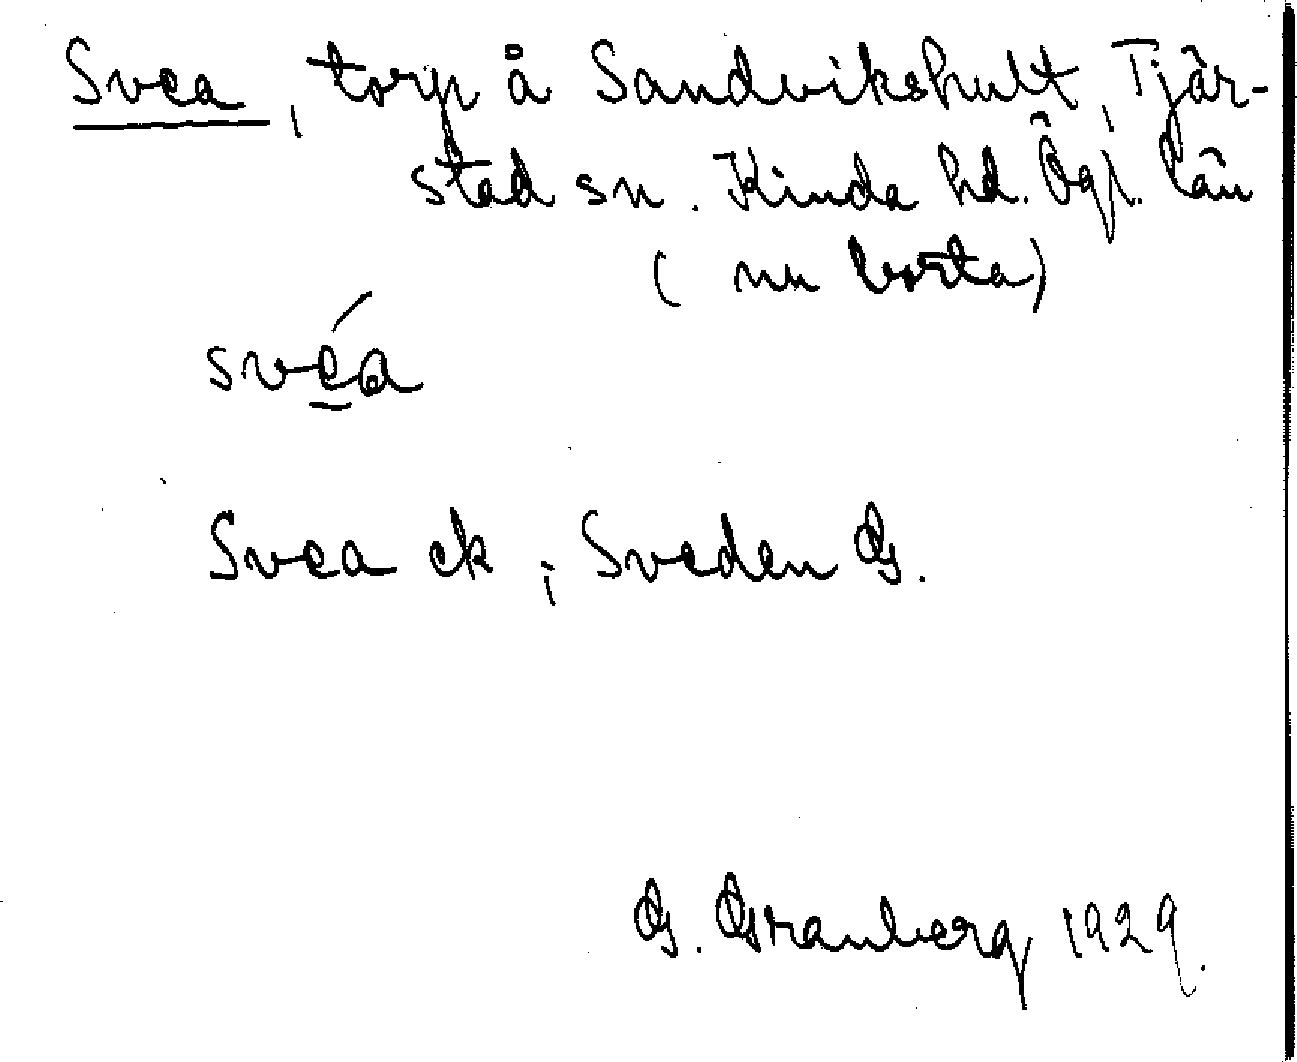 Svea, torp å Sandvikshult, Tjär-
stad sn. Kinda hd. Ögl. län
(nu borta)
svéa
Svea ek; Sveden G.
G. Granberg 1929.